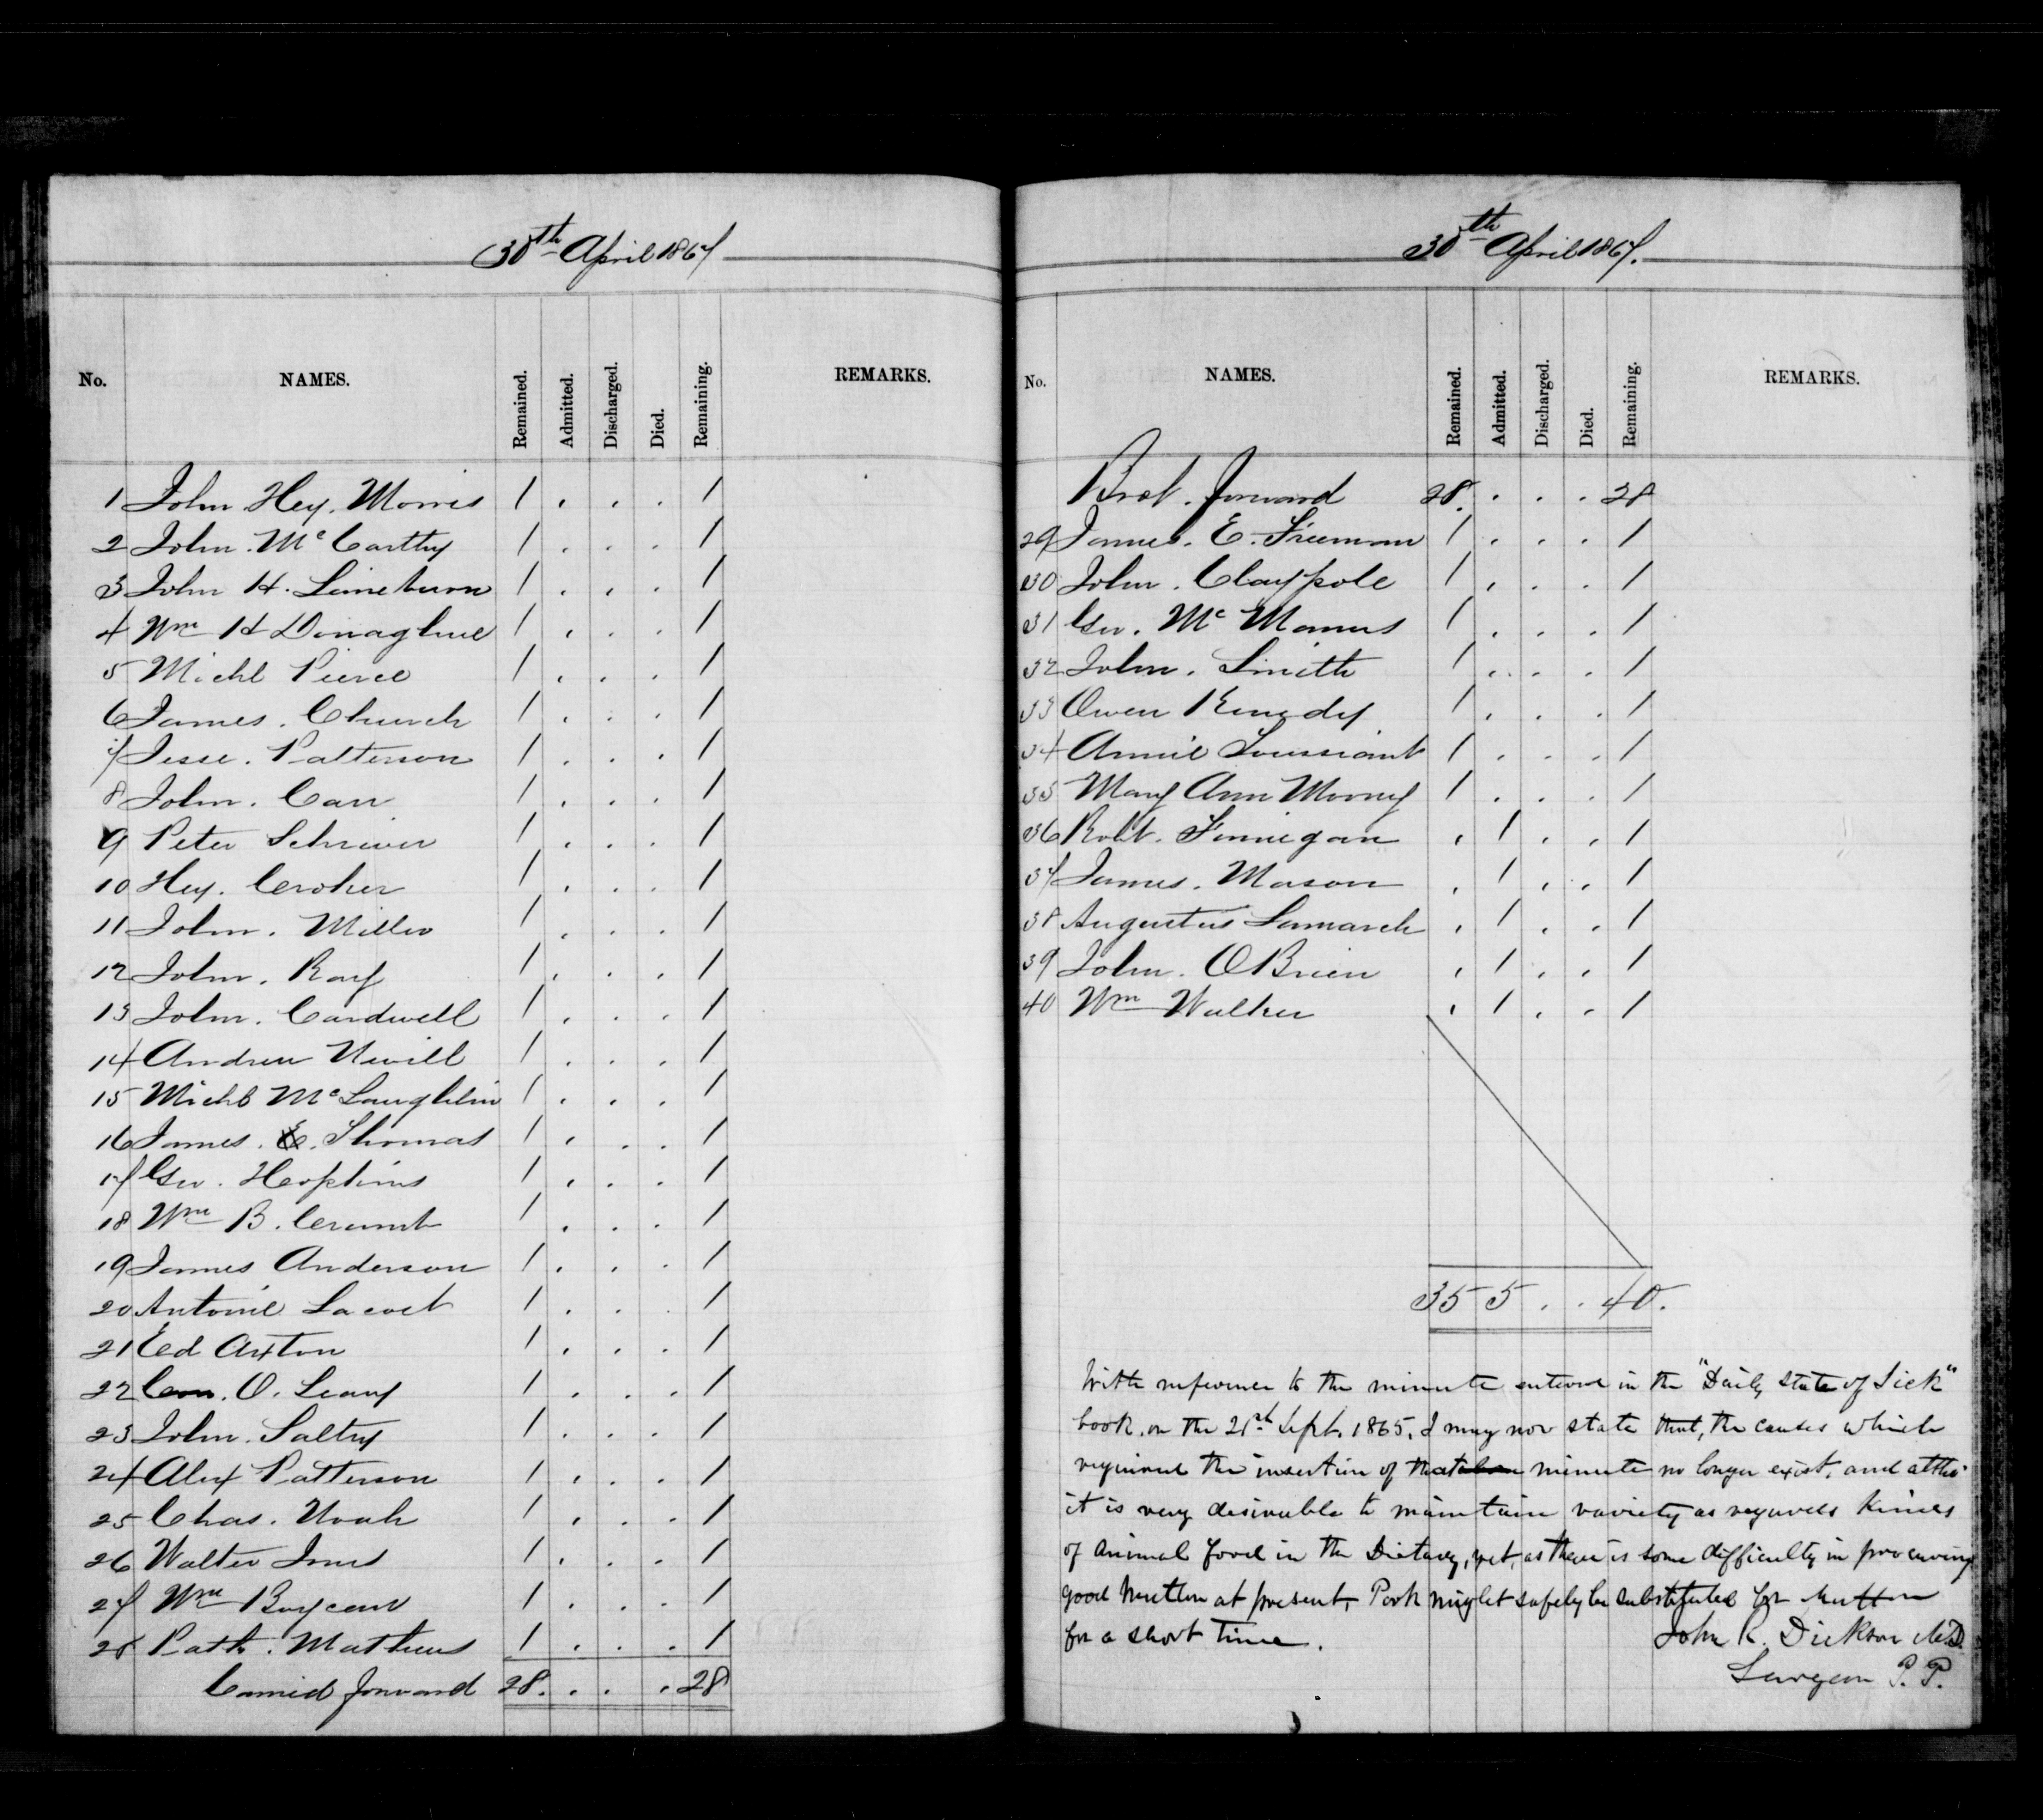 30th April 1867
No. NAMES. Remained. Admitted. Discharged. Died. Remaining. REMARKS.
1 John Hey. Morris 1 . . . 1
2 John. McCarthy 1 . . . 1
3 John H. Limeburn 1 . . . 1
4 Wm H Donaghue 1 . . . 1
5 Michl Pierce 1 . . . 1
6 James. Church 1 . . . 1
7 Jesse. Patterson 1 . . . 1
8 John. Carr 1 . . . 1
9 Peter Schriver 1 . . . 1
10 Hey. Croker 1 . . . 1
11 John. Miller 1 . . . 1
12 John. Ray 1 . . . 1
13 John. Cardwell 1 . . . 1
14 Andrew Nevill 1 . . . 1
15 Michl McLaughlin 1 . . . 1
16 James. Thomas 1 . . . 1
17 Geo. Hopkins 1 . . . 1
18 Wm B. Crumb 1 . . . 1
19 James Anderson 1 . . . 1
20 Antoine Lacoct 1 . . . 1
21 Ed Axton 1 . . . 1
22 O. Leary 1 . . . 1
23 John. Saltry 1 . . . 1
24 Alex Patterson 1 . . . 1
25 Chas. Noah 1 . . . 1
26 Walter Innes 1 . . . 1
27 Wm 1 . . . 1
28 Patk. Mathews 1 . . . 1
Carried forward 28 . . . 28
30th April 1867.
No. NAMES. Remained. Admitted. Discharged. Died. Remaining. REMARKS.
Brot. forward 28 . . . 28
29 James. E. Freeman 1 . . . 1
30 John. Claypole 1 . . . 1
31 Geo. McManus 1 . . . 1
32 John. Smith 1 . . . 1
33 Owen Kenedy 1 . . . 1
34 Annie Toussiant 1 . . . 1
35 Mary Ann Mooney 1 . . . 1
36 Robt. Finnegan . 1 . . 1
37 James. Mason . 1 . . 1
38 Augustus Lamarch . 1 . . 1
39 John. OBrien . 1 . . 1
40 Wm Walker . 1 . . 1
35 5 . . 40.
With reference to the minute entered in the "Daily State of Sick"
book, on the 21st Sept. 1865, I may now state that, the causes which
required the insertion of that minute no longer exist, and altho'
it is very desirable to maintain variety as regards kinds
of animal food in the Dietary, yet, as there is some difficulty in procuring
good Mutton at present, Pork might safely be substituted for Mutton
for a short time.
John R. Dickson M.D.
Surgeon P. P.